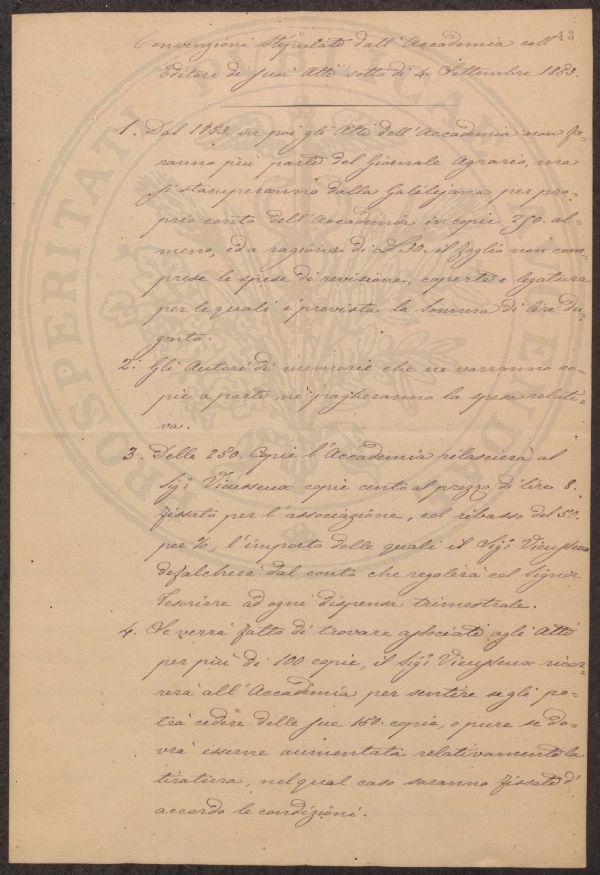 13
Convenzioni stipulate dall'Accademia coll'
Editore de' suoi Atti sotto dì 4. Settembre 1853.
1. Dal 1853. in poi gli Atti dell'Accademia non fa-
ranno più parte del Giornale Agrario, ma
si stamperanno dalla Galilejana per pro-
prio conto dell'Accademia in copie 250. al-
meno, ed a ragione di £ 30. il foglio non com-
prese le spese di revisione, coperte e legatura
per le quali è prevista la somma di lire du-
gento.
2. Gli Autori di memorie che ne vorranno co-
pie a parte ne pagheranno la spesa relati-
va.
3. Delle 250. Copie l'Accademia rilascierà al
Sigr. Vieusseux copie cento al prezzo di lire 8.
fissato per l'associazione, col ribasso del 50.
per %, l'importo delle quali il Sigr. Vieusseux
defalcherà dal conto che regolerà col Signor
Tesoriere ad ogni dispensa trimestrale.
4. Se verrà fatto di trovare associati agli Atti
per più di 100 copie, il Sigr. Vieusseux ricor-
rerà all'Accademia per sentire se gli po-
trà cedere delle sue 150. copie, o pure se do-
vrà esserne aumentata relativamente la
tiratura, nel qual caso saranno fissate d'
accordo le condizioni.
PROSPERITATI PUBLICAE AUGENDAE